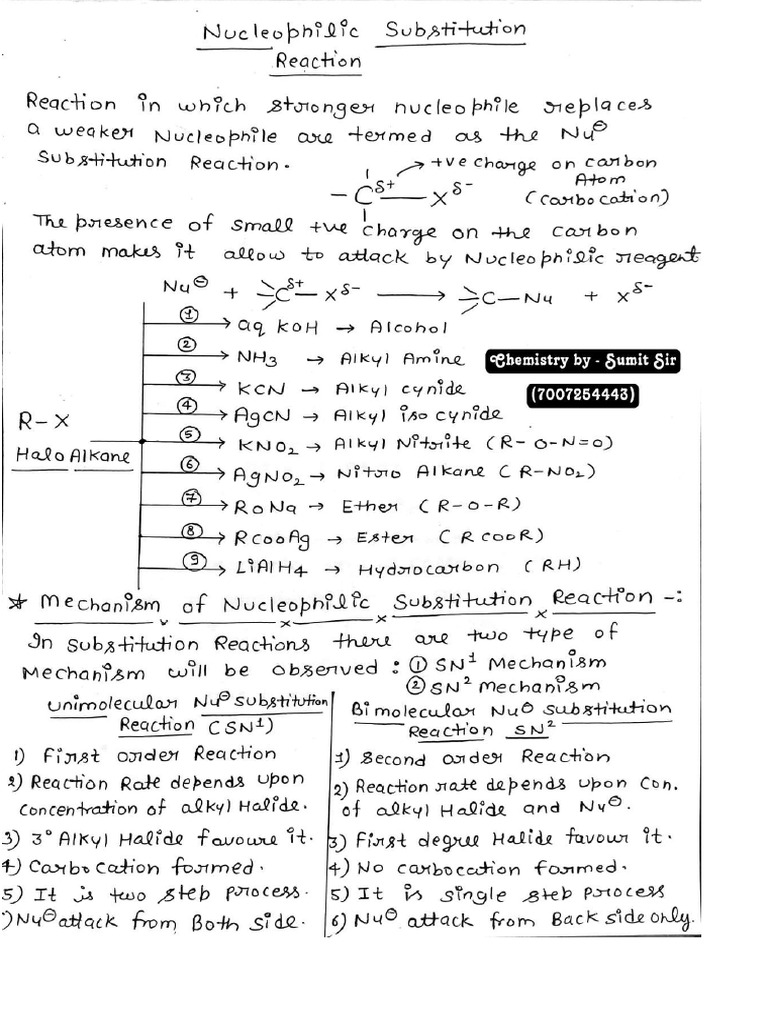 Nucleophilic Substitution
Reaction
Reaction in which stronger nucleophile replaces
a weaker Nucleophile are termed as the Nu⊖
Substitution Reaction.
+ve charge on carbon
Atom
(carbocation)
− C^δ+ — X^δ−
The presence of small +ve charge on the carbon
atom makes it allow to attack by Nucleophilic reagent
Nu⊖ + C^δ+ — X^δ− → C — Nu + X^δ−
R − X
Halo Alkane
① → aq KOH → Alcohol
② → NH3 → Alkyl Amine
③ → KCN → Alkyl cynide
④ → AgCN → Alkyl iso cynide
⑤ → KNO2 → Alkyl Nitrite (R- O-N=O)
⑥ → AgNO2 → Nitro Alkane (R-NO2)
⑦ → RoNa → Ether (R-O-R)
⑧ → RcooAg → Ester (RCOOR)
⑨ → LiAlH4 → Hydrocarbon (RH)
Chemistry by - Sumit Sir
(7007254443)
* Mechanism of Nucleophilic Substitution Reaction -:
In substitution Reactions there are two type of
Mechanism will be observed : ① SN1 Mechanism
② SN2 Mechanism
Unimolecular Nu⊖ substitution
Reaction (SN1)
1) First order Reaction
2) Reaction Rate depends upon
concentration of alkyl Halide.
3) 3° Alkyl Halide favoure it.
4) Carbocation formed.
5) It is two step process.
) Nu⊖ attack from Both side.
Bimolecular Nu⊖ substitution
Reaction SN2
1) Second order Reaction
2) Reaction rate depends upon Con.
of alkyl Halide and Nu⊖.
3) First degree Halide favour it.
4) No carbocation formed.
5) It is single step process
6) Nu⊖ attack from Back side only.